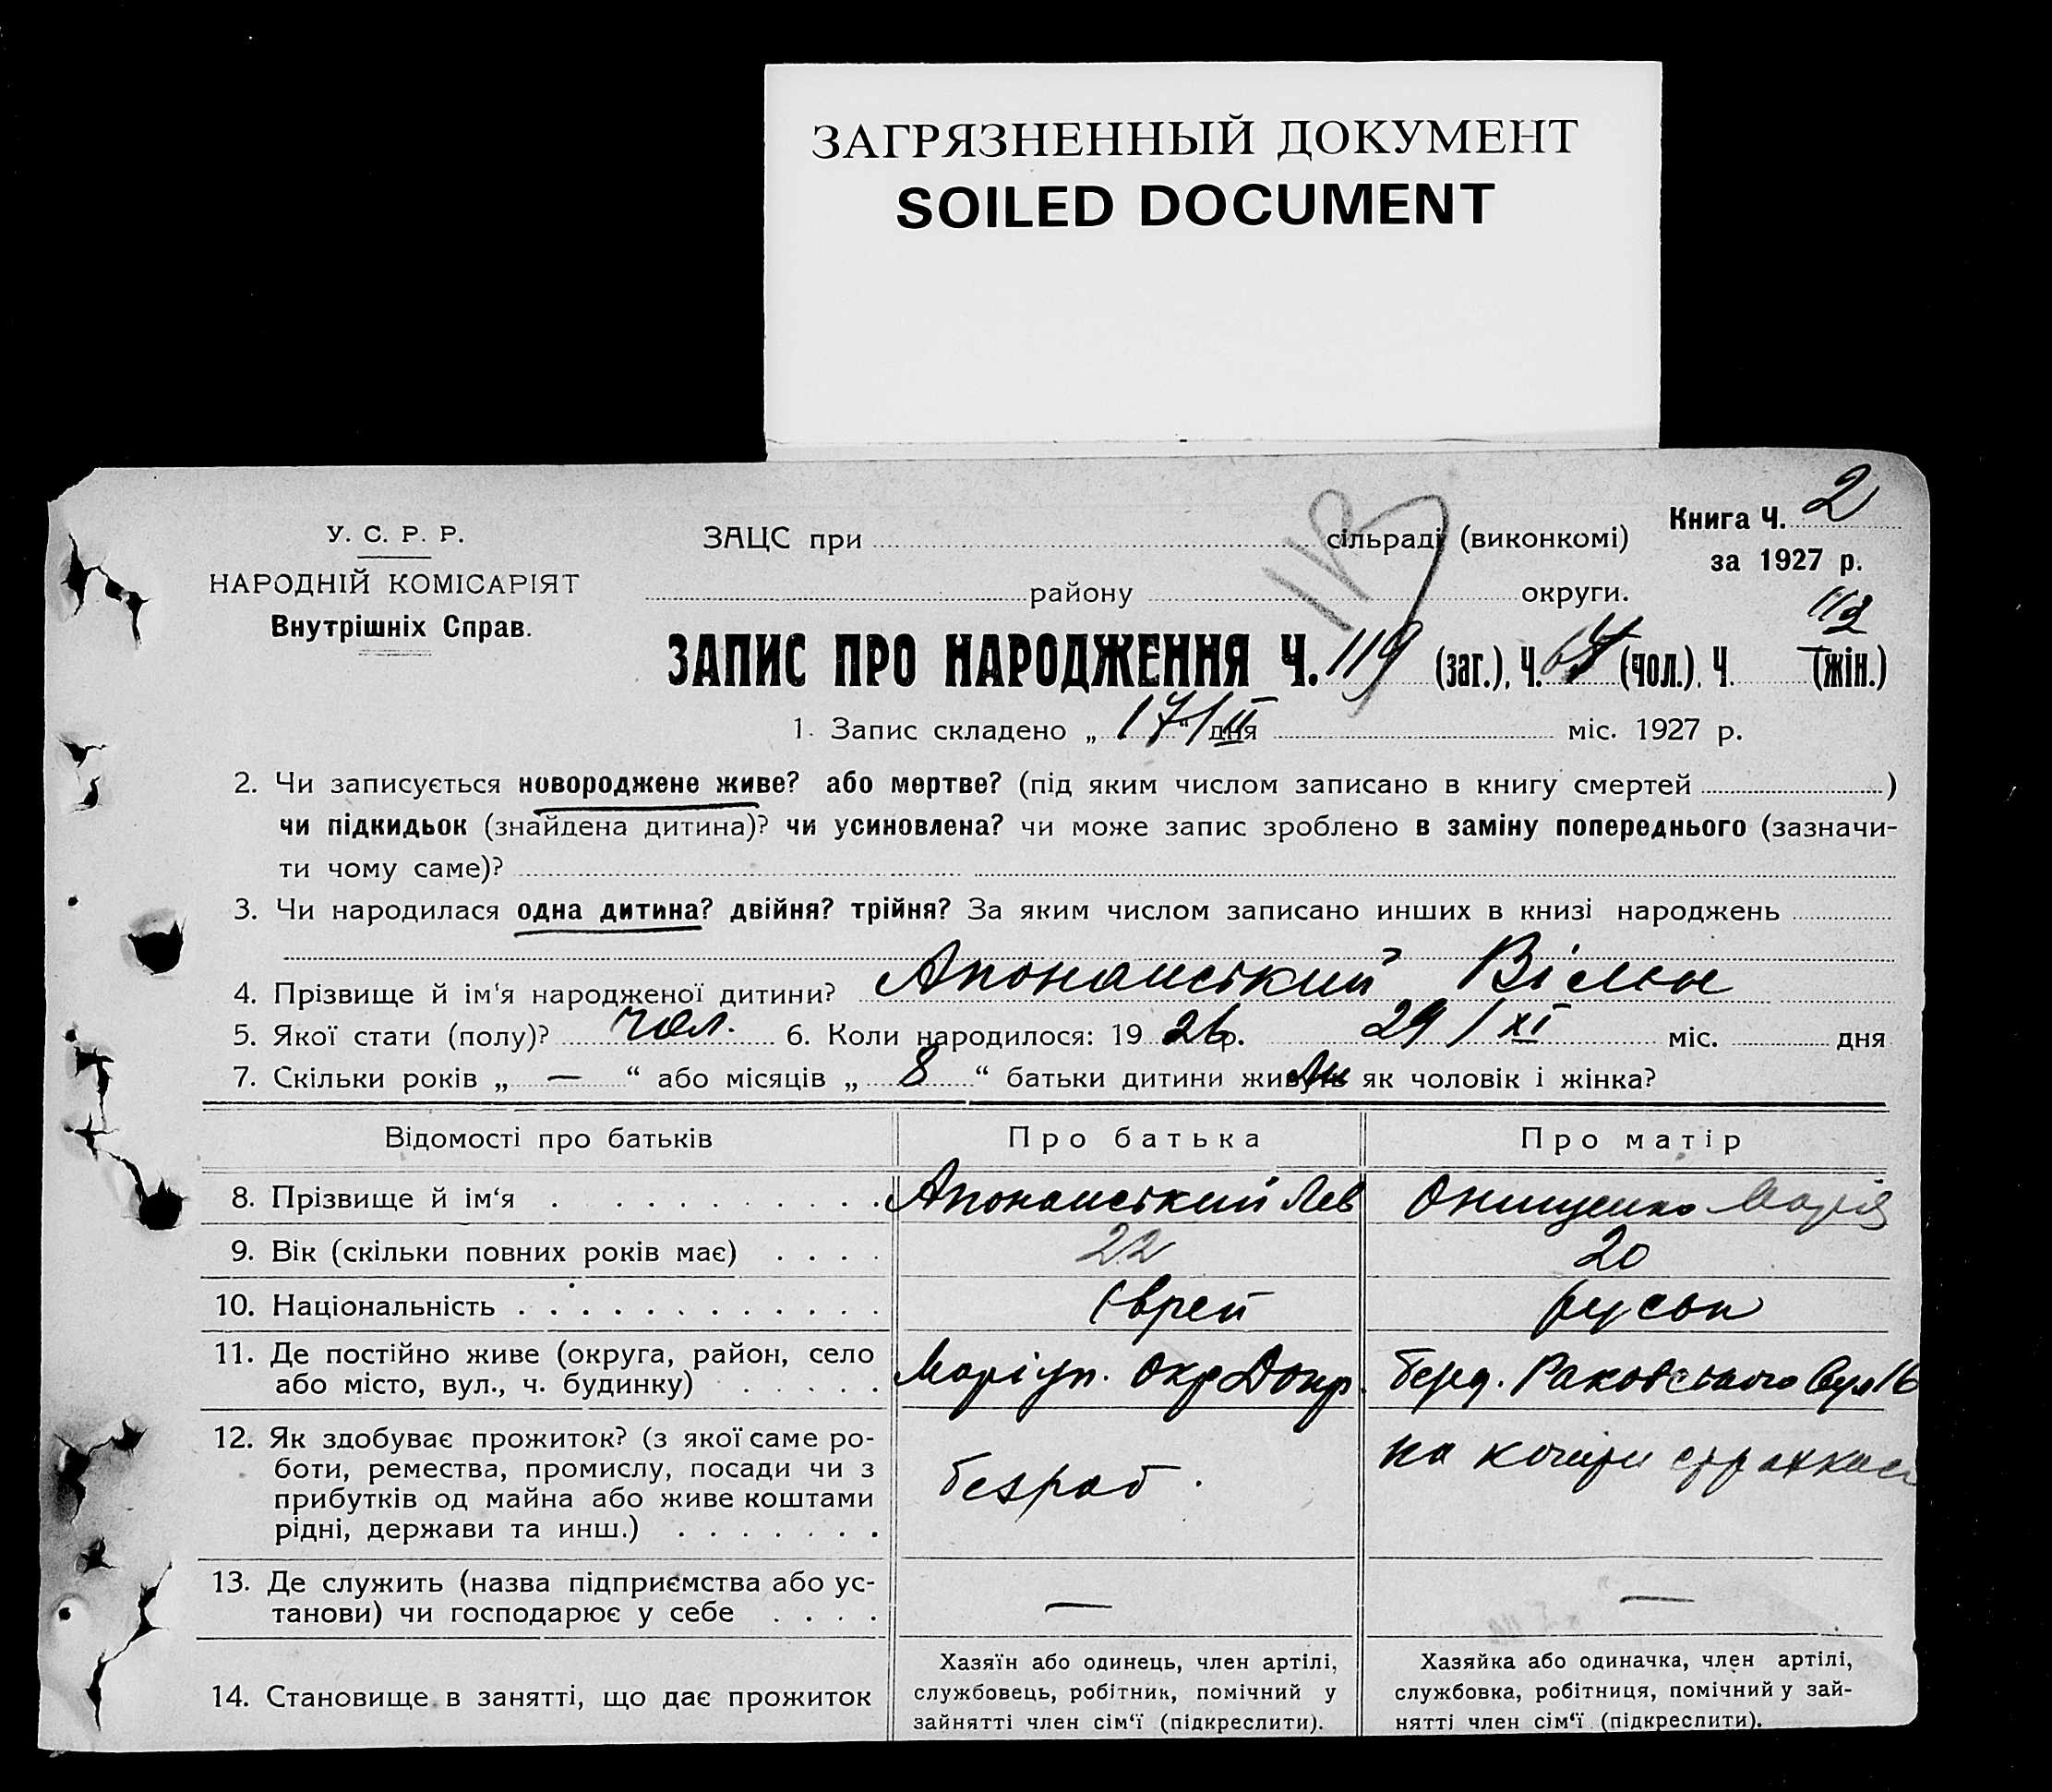 ЗАГРЯЗНЕННЫЙ ДОКУМЕНТ
SOILED DOCUMENT
Книга Ч. 2
У. С. Р. Р.
ЗАЦС при сільраді (виконкомі)
за 1927 р.
НАРОДНІЙ КОМІСАРІЯТ
району округи.
Внутрішніх Справ.
112
ЗАПИС ПРО НАРОДЖЕННЯ Ч. 119 (заг.), Ч. 64 (чол.), Ч. (жін.)
1. Запис складено „ 17/II “ дня міс. 1927 р.
2. Чи записується новороджене живе? або мертве? (під яким числом записано в книгу смертей )
чи підкидьок (знайдена дитина)? чи усиновлена? чи може запис зроблено в заміну попереднього (зазначи-
ти чому саме)?
3. Чи народилася одна дитина? двійня? трійня? За яким числом записано инших в книзі народжень
4. Прізвище й ім'я народженої дитини? Апонанський
5. Якої стати (полу)? чол. 6. Коли народилося: 1926 р. 29/XI міс. дня
7. Скільки років „ — “ або місяців „ 8 “ батьки дитини як чоловік і жінка?
Відомості про батьків Про батька Про матір
8. Прізвище й ім'я Апонанський Лев Онищенко Марія
9. Вік (скільки повних років має) 22 20
10. Національність Єврей русск
11. Де постійно живе (округа, район, село
або місто, вул., ч. будинку) Маріуп. окр Берд. Раковського вул 16
12. Як здобуває прожиток? (з якої саме ро-
боти, ремества, промислу, посади чи з
прибутків од майна або живе коштами
рідні, держави та инш.) безраб. на
13. Де служить (назва підприємства або ус-
танови) чи господарює у себе — —
14. Становище в занятті, що дає прожиток
Хазяїн або одинець, член артілі,
службовець, робітник, помічний у
зайнятті член сім'ї (підкреслити).
Хазяйка або одиначка, член артілі,
службовка, робітниця, помічний у зай-
нятті член сім'ї (підкреслити).